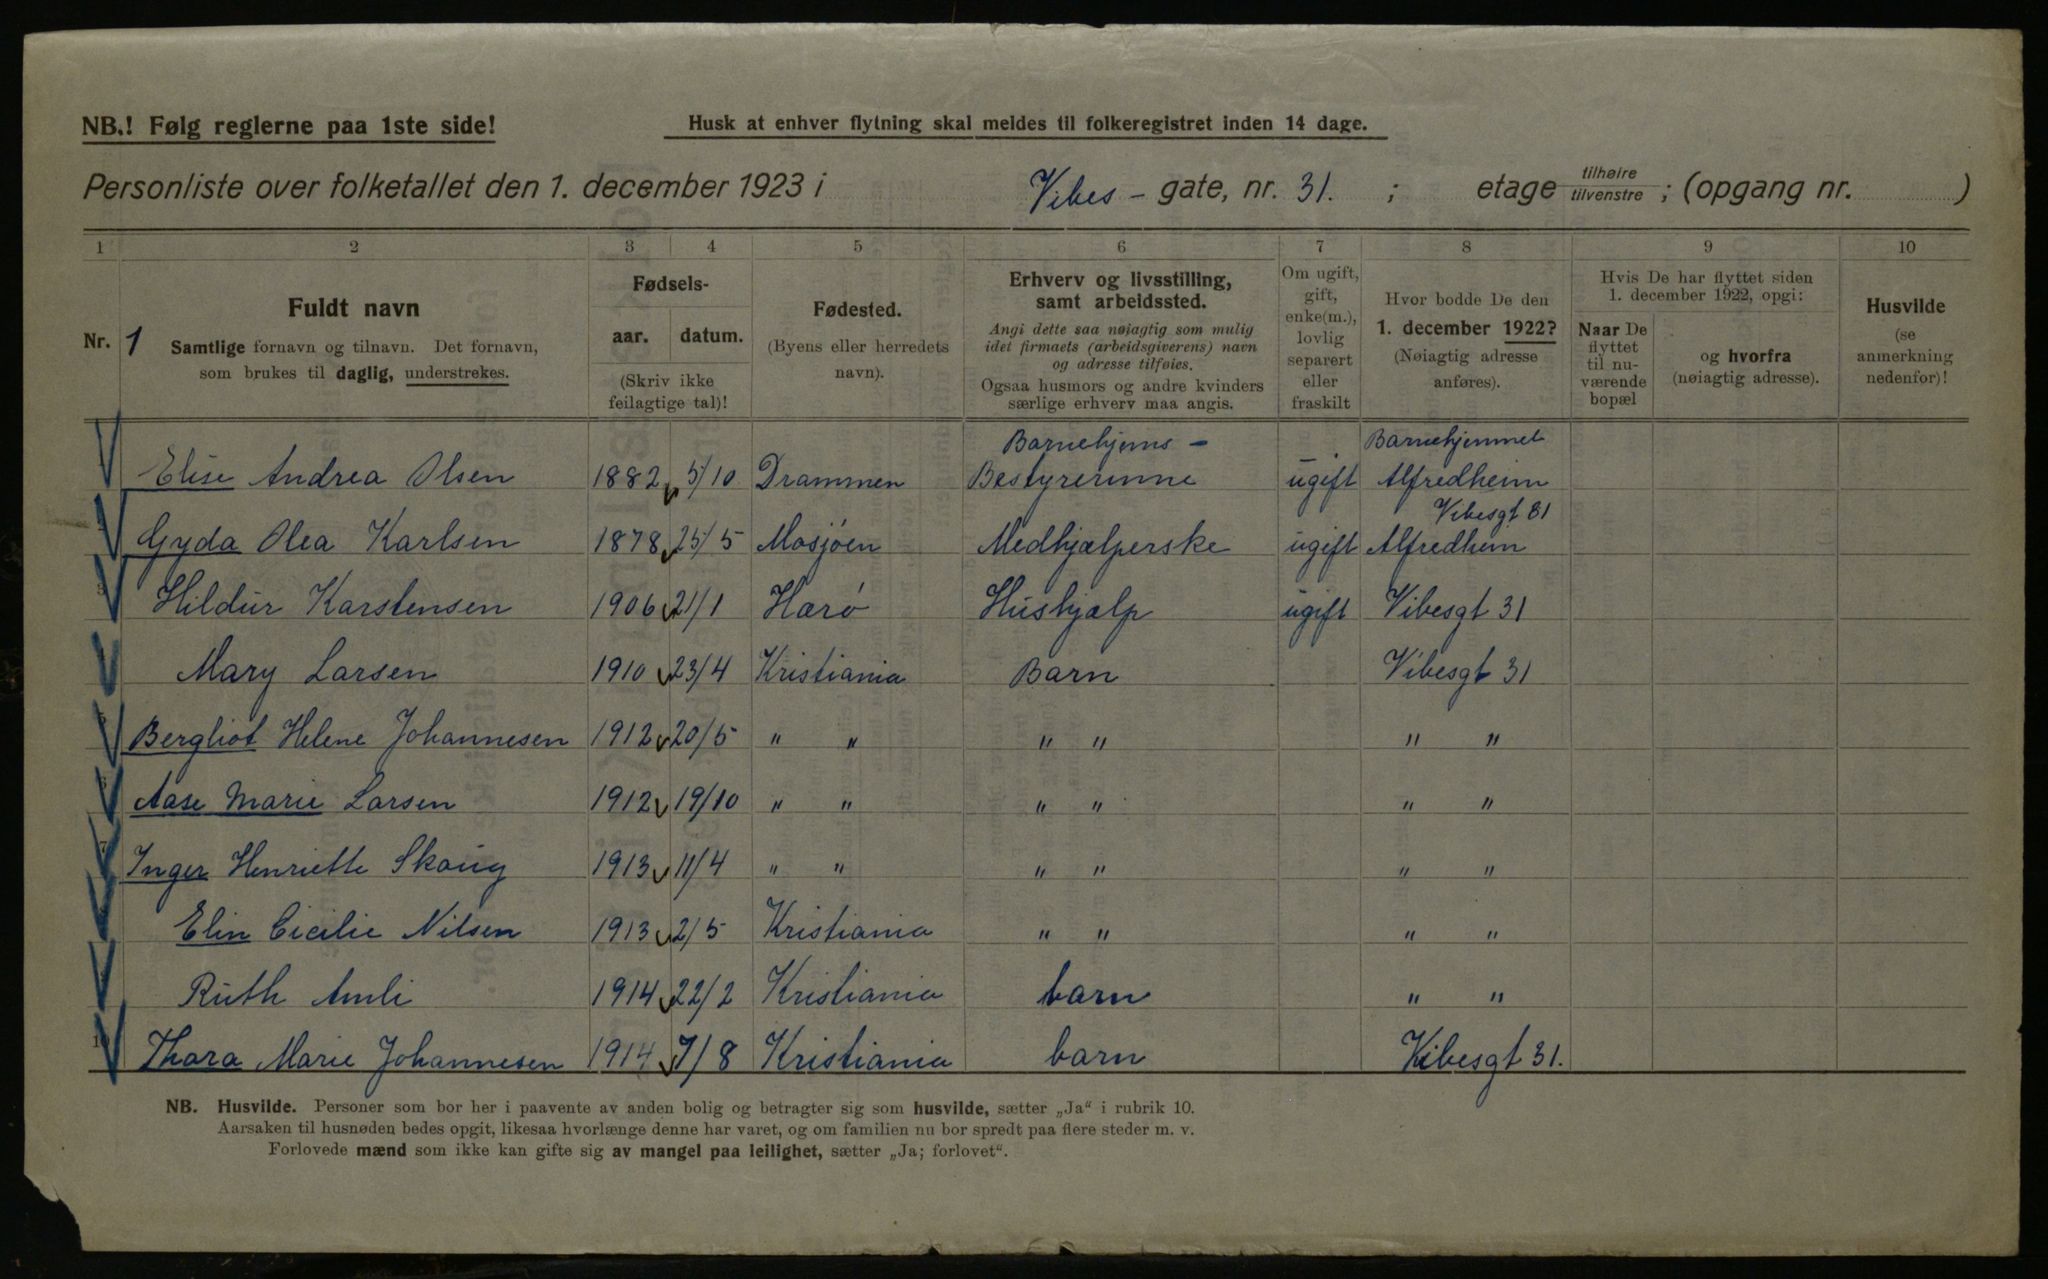 NB.! Følg reglerne paa 1ste side!
Husk at enhver flytning skal meldes til folkeregistret inden 14 dage.
Personliste over folketallet den 1. december 1923 i Vibes - gate, nr. 31. ; etage tilhøire tilvenstre ; (opgang nr. )
1 2 3 4 5 6 7 8 9 10
Nr. 1
Fuldt navn
Samtlige fornavn og tilnavn. Det fornavn,
som brukes til daglig, understrekes.
Fødsels-
aar. datum.
(Skriv ikke
feilagtige tal)!
Fødested.
(Byens eller herredets
navn).
Erhverv og livsstilling,
samt arbeidssted.
Angi dette saa nøiagtig som mulig
idet firmaets (arbeidsgiverens) navn
og adresse tilføies.
Ogsaa husmors og andre kvinders
særlige erhverv maa angis.
Om ugift,
gift,
enke(m.),
lovlig
separert
eller
fraskilt
Hvor bodde De den
1. december 1922?
(Nøiagtig adresse
anføres).
Hvis De har flyttet siden
1. december 1922, opgi:
Naar De
flyttet
til nu-
værende
bopæl
og hvorfra
(nøiagtig adresse).
Husvilde
(se
anmerkning
nedenfor)!
Barnehjems - Barnehjemmet
Elise Andrea Olsen 1882 5/10 Drammen Bestyrerinne ugift Alfredheim
Vibesgt 31
Gyda Olea Karlsen 1878 25/5 Mosjøen Medhjælperske ugift Alfredheim
Hildur Karstensen 1906 21/1 Herø Hushjælp ugift Vibesgt 31
Mary Larsen 1910 23/4 Kristiania Barn Vibesgt 31
Bergliot Helene Johannesen 1912 20/5 " " " " " "
Aase Marie Larsen 1912 19/10 " " " " " "
7 Inger Henriette Skoug 1913 11/4 " " " " " "
Elin Cicilie Nilsen 1913 2/5 Kristiania " " " "
Ruth Amli 1914 22/2 Kristiania barn " "
10 Thora Marie Johannesen 1914 7/8 Kristiania barn Vibesgt 31.
NB. Husvilde. Personer som bor her i paavente av anden bolig og betragter sig som husvilde, sætter „Ja" i rubrik 10.
Aarsaken til husnøden bedes opgit, likesaa hvorlænge denne har varet, og om familien nu bor spredt paa flere steder m. v.
Forlovede mænd som ikke kan gifte sig av mangel paa leilighet, sætter „Ja; forlovet".